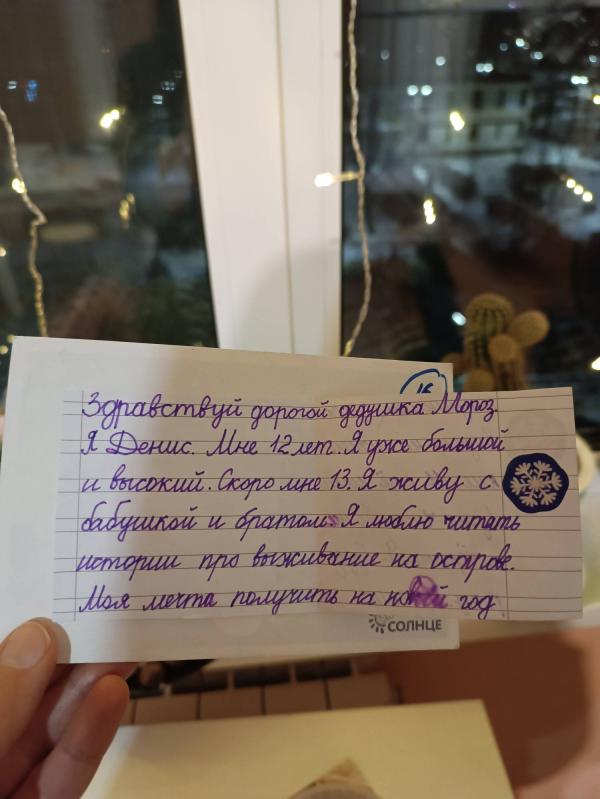 16
Здравствуй дорогой дедушка Мороз.
Я Денис. Мне 12 лет. Я уже большой
и высокий. Скоро мне 13. Я живу с
бабушкой и братом. Я люблю читать
истории про выживание на острове.
Моя мечта получить на новый год
СОЛНЦЕ